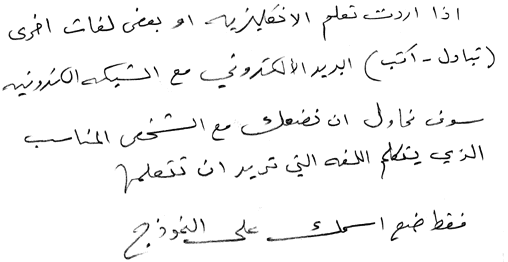 اذا اردت تعلم الانكليزيه او بعض لغات اخرى
(تبادل - اكتب) البريد الالكتروني مع الشبكه الكترونيه
سوف نحاول ان نضعك مع الشخص المناسب
الذي يتكلم اللغه التي تريد ان تتعلمها
فقط ضع اسمك على النموذج